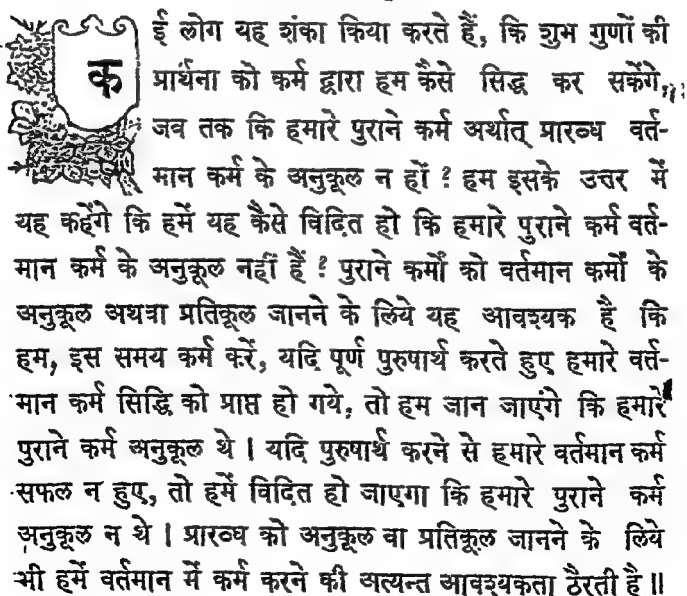 कई लोग यह शंका किया करते हैं, कि शुभ गुणों की
प्रार्थना को कर्म द्वारा हम कैसे सिद्ध कर सकेंगे,
जब तक कि हमारे पुराने कर्म अर्थात् प्रारब्ध वर्त-
मान कर्म के अनुकूल न हों ? हम इसके उत्तर में
यह कहेंगे कि हमें यह कैसे विदित हो कि हमारे पुराने कर्म वर्त-
मान कर्म के अनुकूल नहीं हैं ? पुराने कर्मों को वर्तमान कर्मों के
अनुकूल अथवा प्रतिकूल जानने के लिये यह आवश्यक है कि
हम, इस समय कर्म करें, यदि पूर्ण पुरुषार्थ करते हुए हमारे वर्त-
मान कर्म सिद्धि को प्राप्त हो गये, तो हम जान जाएंगे कि हमारे
पुराने कर्म अनुकूल थे । यदि पुरुषार्थ करने से हमारे वर्तमान कर्म
सफल न हुए, तो हमें विदित हो जाएगा कि हमारे पुराने कर्म
अनुकूल न थे । प्रारब्ध को अनुकूल वा प्रतिकूल जानने के लिये
भी हमें वर्तमान में कर्म करने की अत्यन्त आवश्यकता ठैरती है ॥